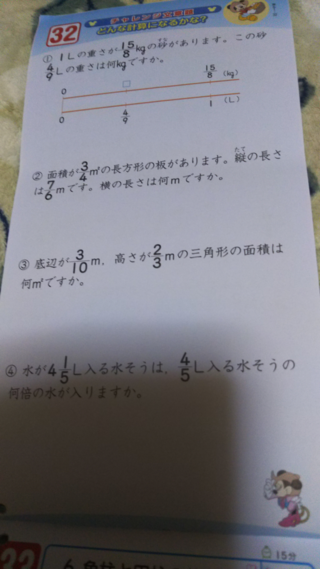 32
どんな計算になるかな?
① 1Lの重さが15/8kgの砂があります。この砂
4/9Lの重さは何kgですか。
0 □ 15/8 (kg)
0 4/9 1 (L)
② 面積が3/4m²の長方形の板があります。縦の長さ
たて
は7/6mです。横の長さは何mですか。
③ 底辺が3/10m、高さが2/3mの三角形の面積は
何m²ですか。
④ 水が4 1/5L入る水そうは、4/5L入る水そうの
何倍の水が入りますか。
15分